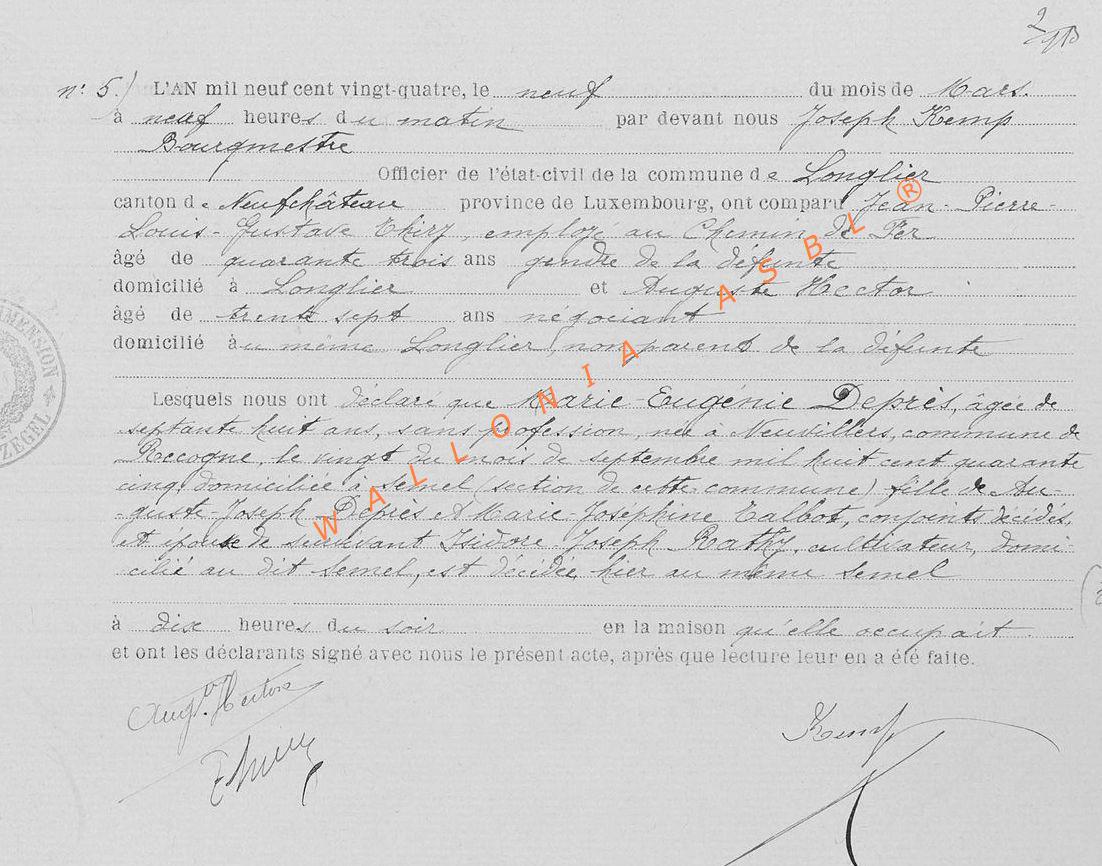 n° 5. L'AN mil neuf cent vingt-quatre, le neuf du mois de Mars.
à neuf heures du matin par devant nous Joseph Kemp
Bourgmestre
Officier de l'état-civil de la commune de Longlier
canton de Neufchâteau province de Luxembourg, ont comparu Jean-Pierre-
Louis-Gustave Thiry, employé au Chemin de Fer
âgé de quarante trois ans gendre de la défunte
domicilié à Longlier et Auguste Hector
âgé de trente sept ans négociant
domicilié àu même Longlier, non parent de la défunte
Lesquels nous ont déclaré que Marie-Eugénie Deprès, âgée de
septante huit ans, sans profession, née à Neuvillers, commune de
Recogne, le vingt du mois de septembre mil huit cent quarante
cinq, domiciliée à Semel (section de cette commune) fille de Au-
-guste-Joseph Deprès et Marie-Josephine Talbot, conjoints décédés,
et épouse de survivant Isidore Joseph Rathy, cultivateur, domi-
cilié au dit Semel, est décédée hier au même Semel
à dix heures du soir en la maison qu'elle occupait
et ont les déclarants signé avec nous le présent acte, après que lecture leur en a été faite.
Aug. Hector
Thiry
Kemp
WALLONIA ASBL ®
IMMERSION
ZEGEL